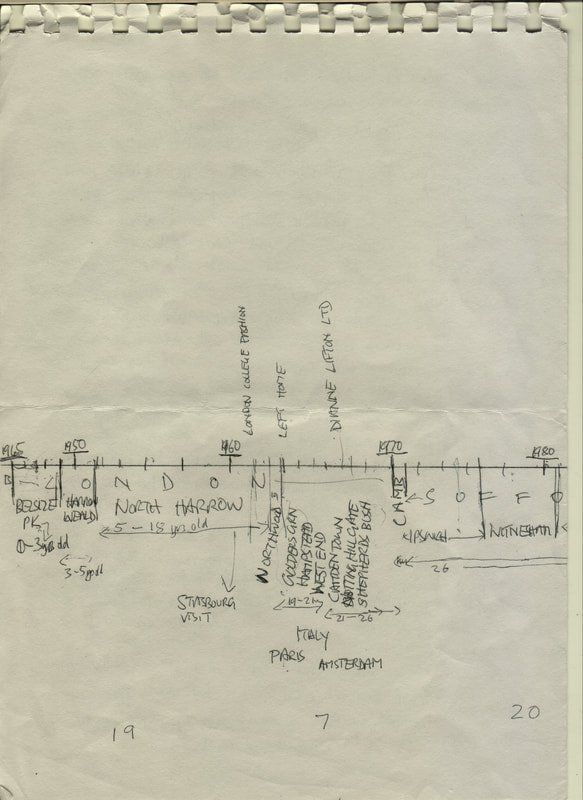 LONDON COLLEGE FASHION
LEFT HOME
DIANNE LIFTON LTD
1965
1950
1960
1970
1980
L O N D O N
S O F F O
BELSIZE
PK
0-3 yrs old
HARROW
WEALD
3-5 yr old
NORTH HARROW
5 - 18 yrs old
NORTHWOOD
GOLDERS GRN
HAMPSTEAD
WEST END
CAMDEN TOWN
NOTTING HILL GATE
SHEPHERDS BUSH
CAMB
IPSWICH
26
19-21
21-26
STRASBOURG
VISIT
ITALY
PARIS
AMSTERDAM
19
7
20